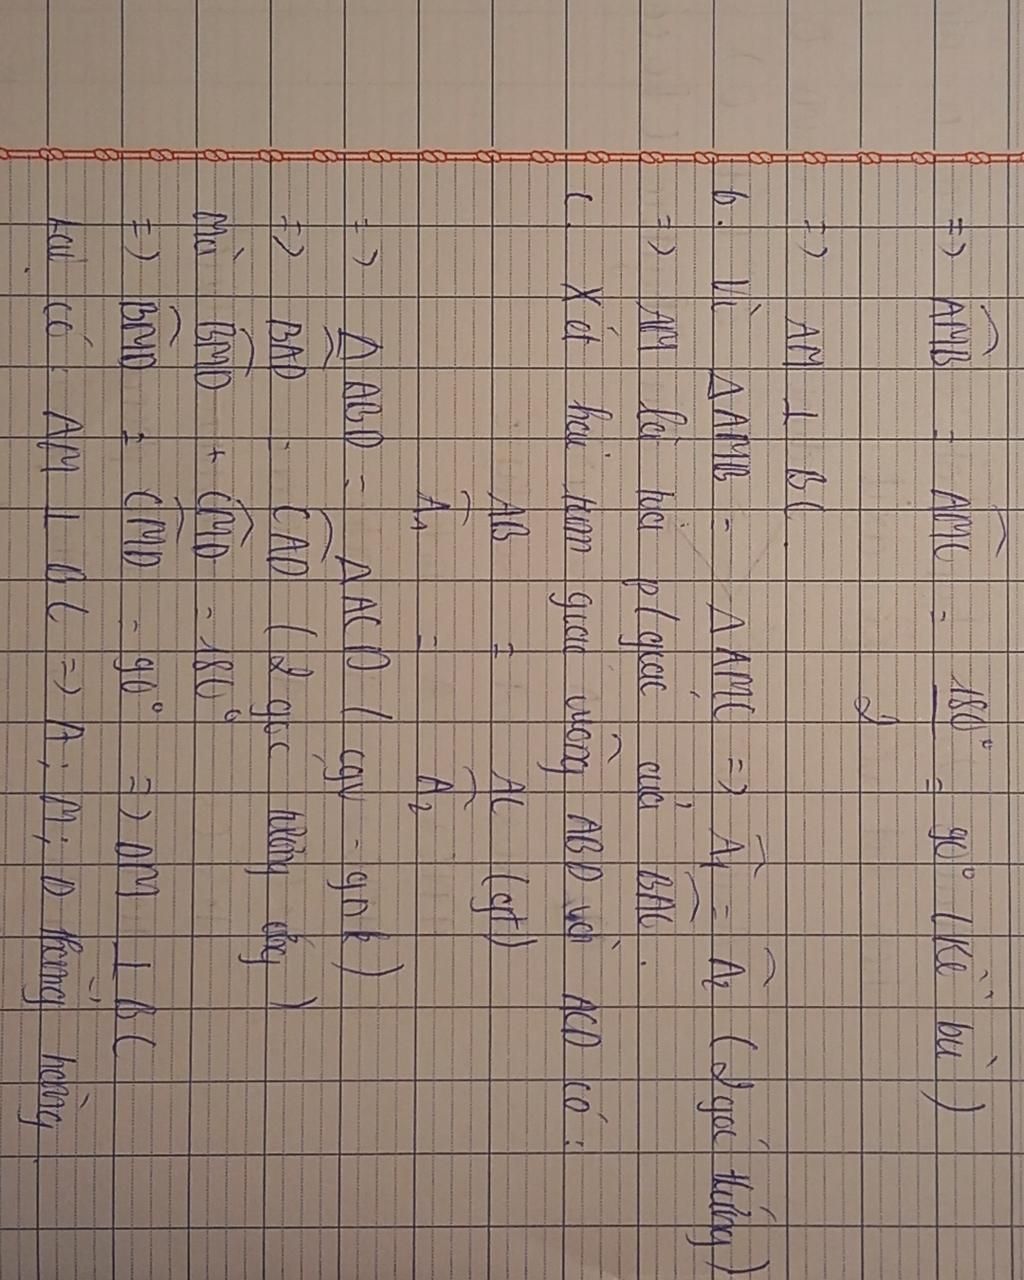 => AMB = AMC = 180° = 90° (Kề bù)
2
=> AM ⊥ BC.
b. Vì ΔAMB = ΔAMC => A1 = A2 (2 góc tương)
=> AM là tia p/giác của BAC.
c. Xét hai tam giác vuông ABD và ACD có:
AB = AC (cgt)
A1 = A2
=> ΔABD = ΔACD (cgv - gnk)
=> BAD = CAD (2 góc tương ứng)
Mà BMD + CMD = 180°
=> BMD = CMD = 90° => DM ⊥ BC
có: AM ⊥ BC => A; M; D thẳng hàng.